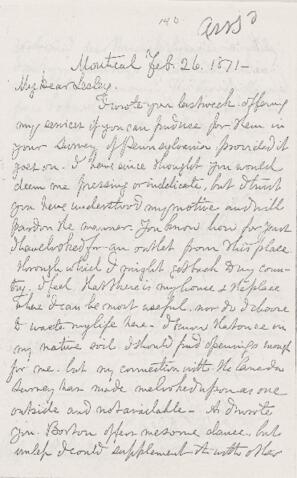 140
ansd
Montreal Feb. 26. 1871 -
My Dear Lesley,
I wrote you last week offering
my services if you can find use for them in
your survey of Pennsylvania, provided it
goes on. I have since thought you would
deem me pressing or indelicate, but I trust
you have understood my motive and will
pardon the manner. You know how for years
I have looked for an outlet from this place
through which I might get back to my coun-
try. I feel that there is my house & the place
where I can be most useful, nor do I choose
to waste my life here - I know that once on
my native soil I should find openings enough
for me, but my connection with the Canadian
Survey has made me looked upon as one
outside and not available - As I wrote
you, Boston offers me some chance, but
unless I could supplement it with other